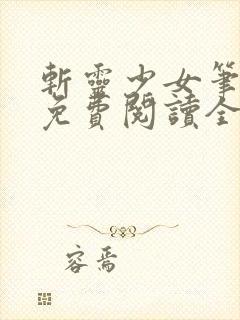 斬靈少女筆
免費閱讀全
容焉